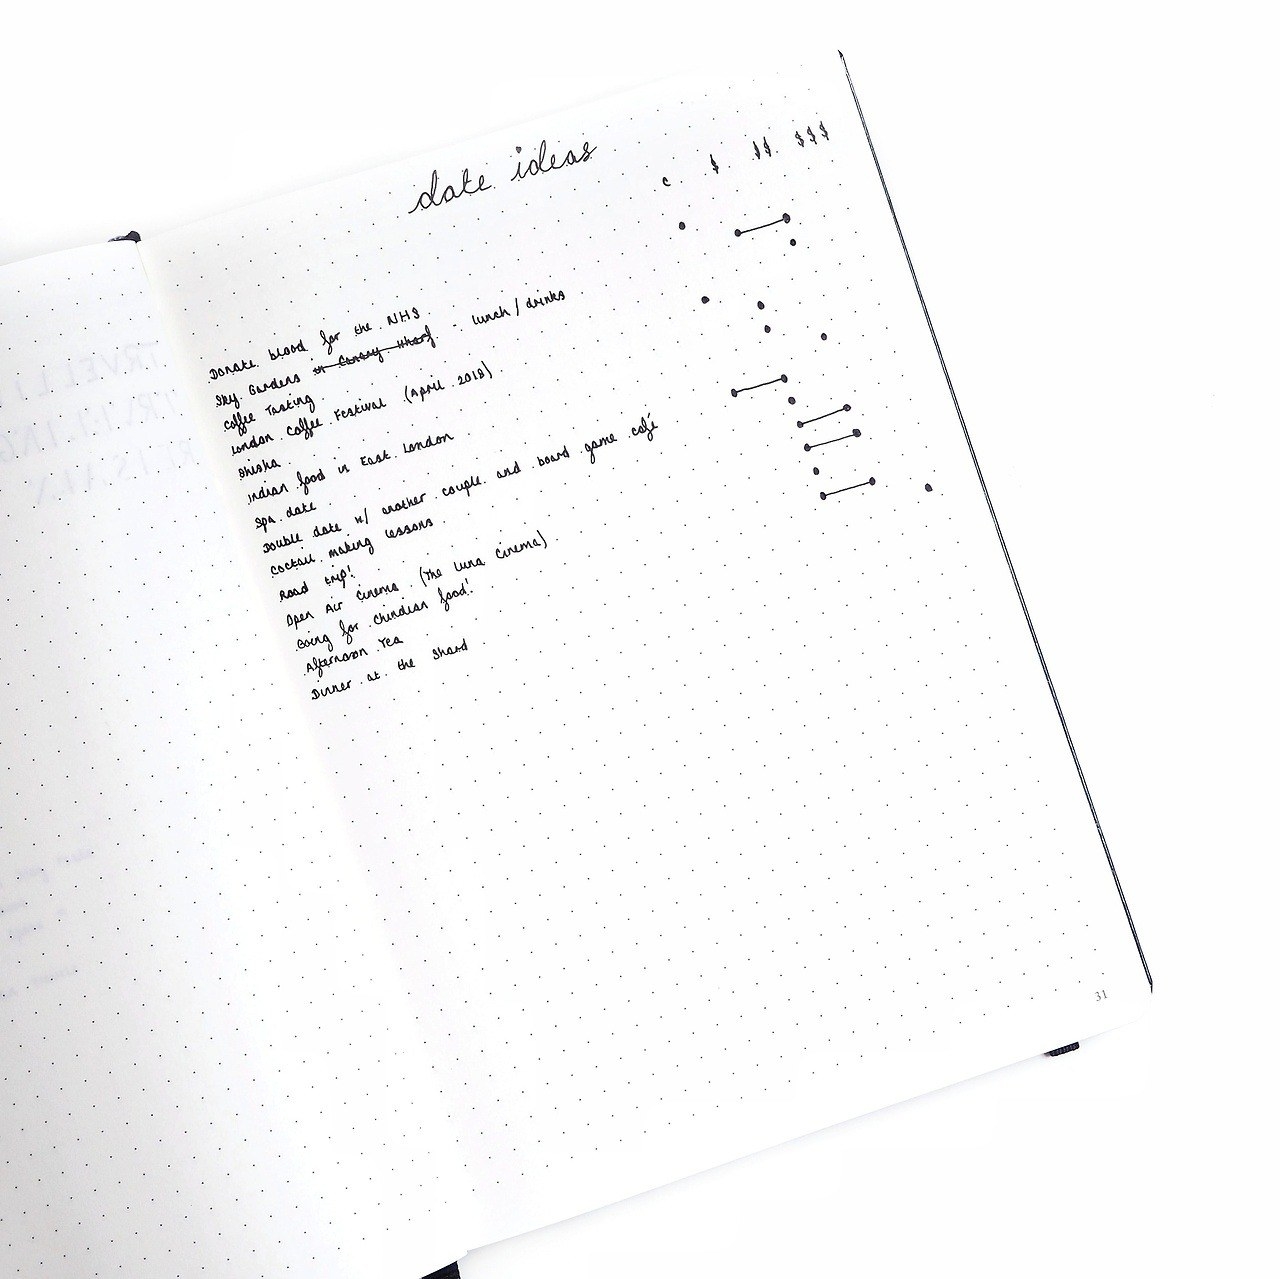 date ideas
c $ $$ $$$
Donate blood for the NHS
Sky Gardens in Canary Wharf - lunch / drinks
Coffee Tasting
London Coffee Festival (April 2018)
Shisha
Indian food in East London
Spa date
Double date w/ another couple and board game café
Cocktail making lessons
Road trip!
Open Air Cinema (The Luna Cinema)
Going for Chindian food!
Afternoon Tea
Dinner at the Shard
31